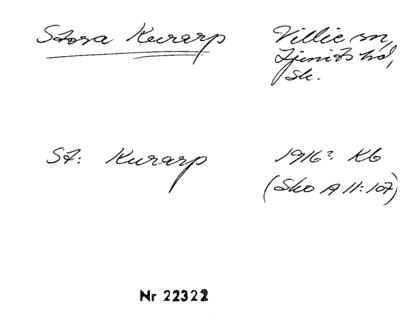 Stora Kurarp Villie sn,
Ljunits hd,
Sk.
St: Kurarp 1916? Kb
(Sko A II:107)
Nr 22322